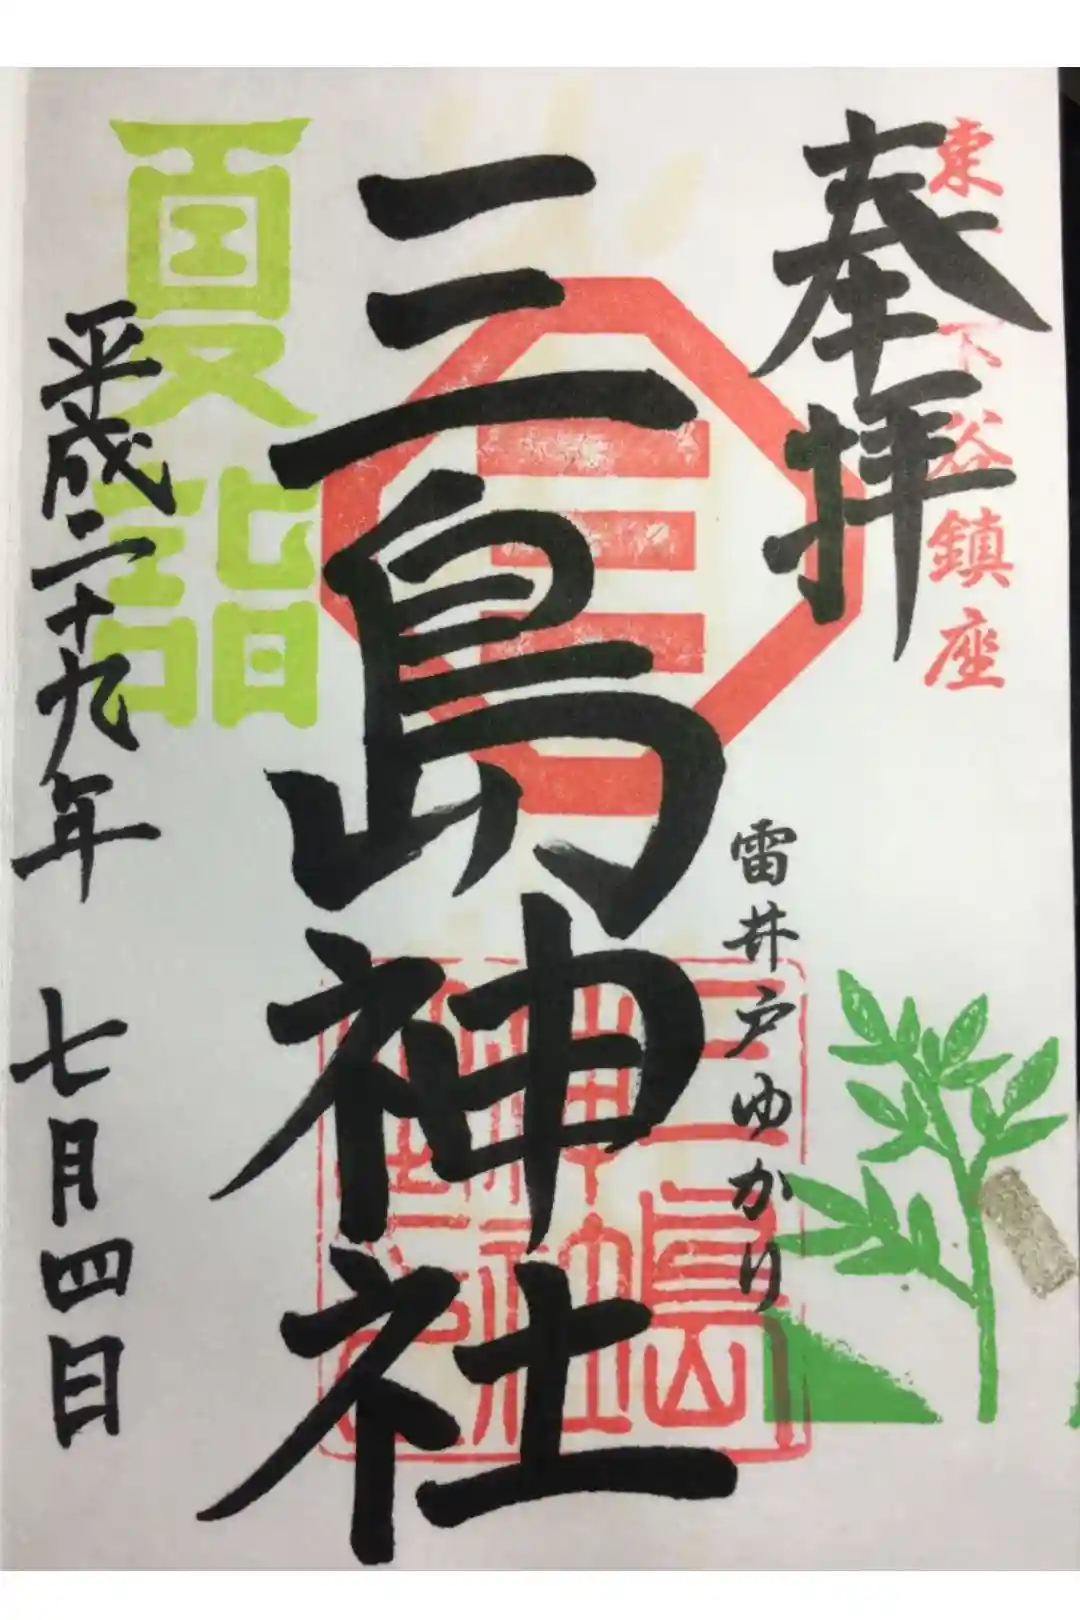 奉拝
東下谷鎮座
三島神社
雷井戸ゆかり
夏詣
平成二十九年 七月四日